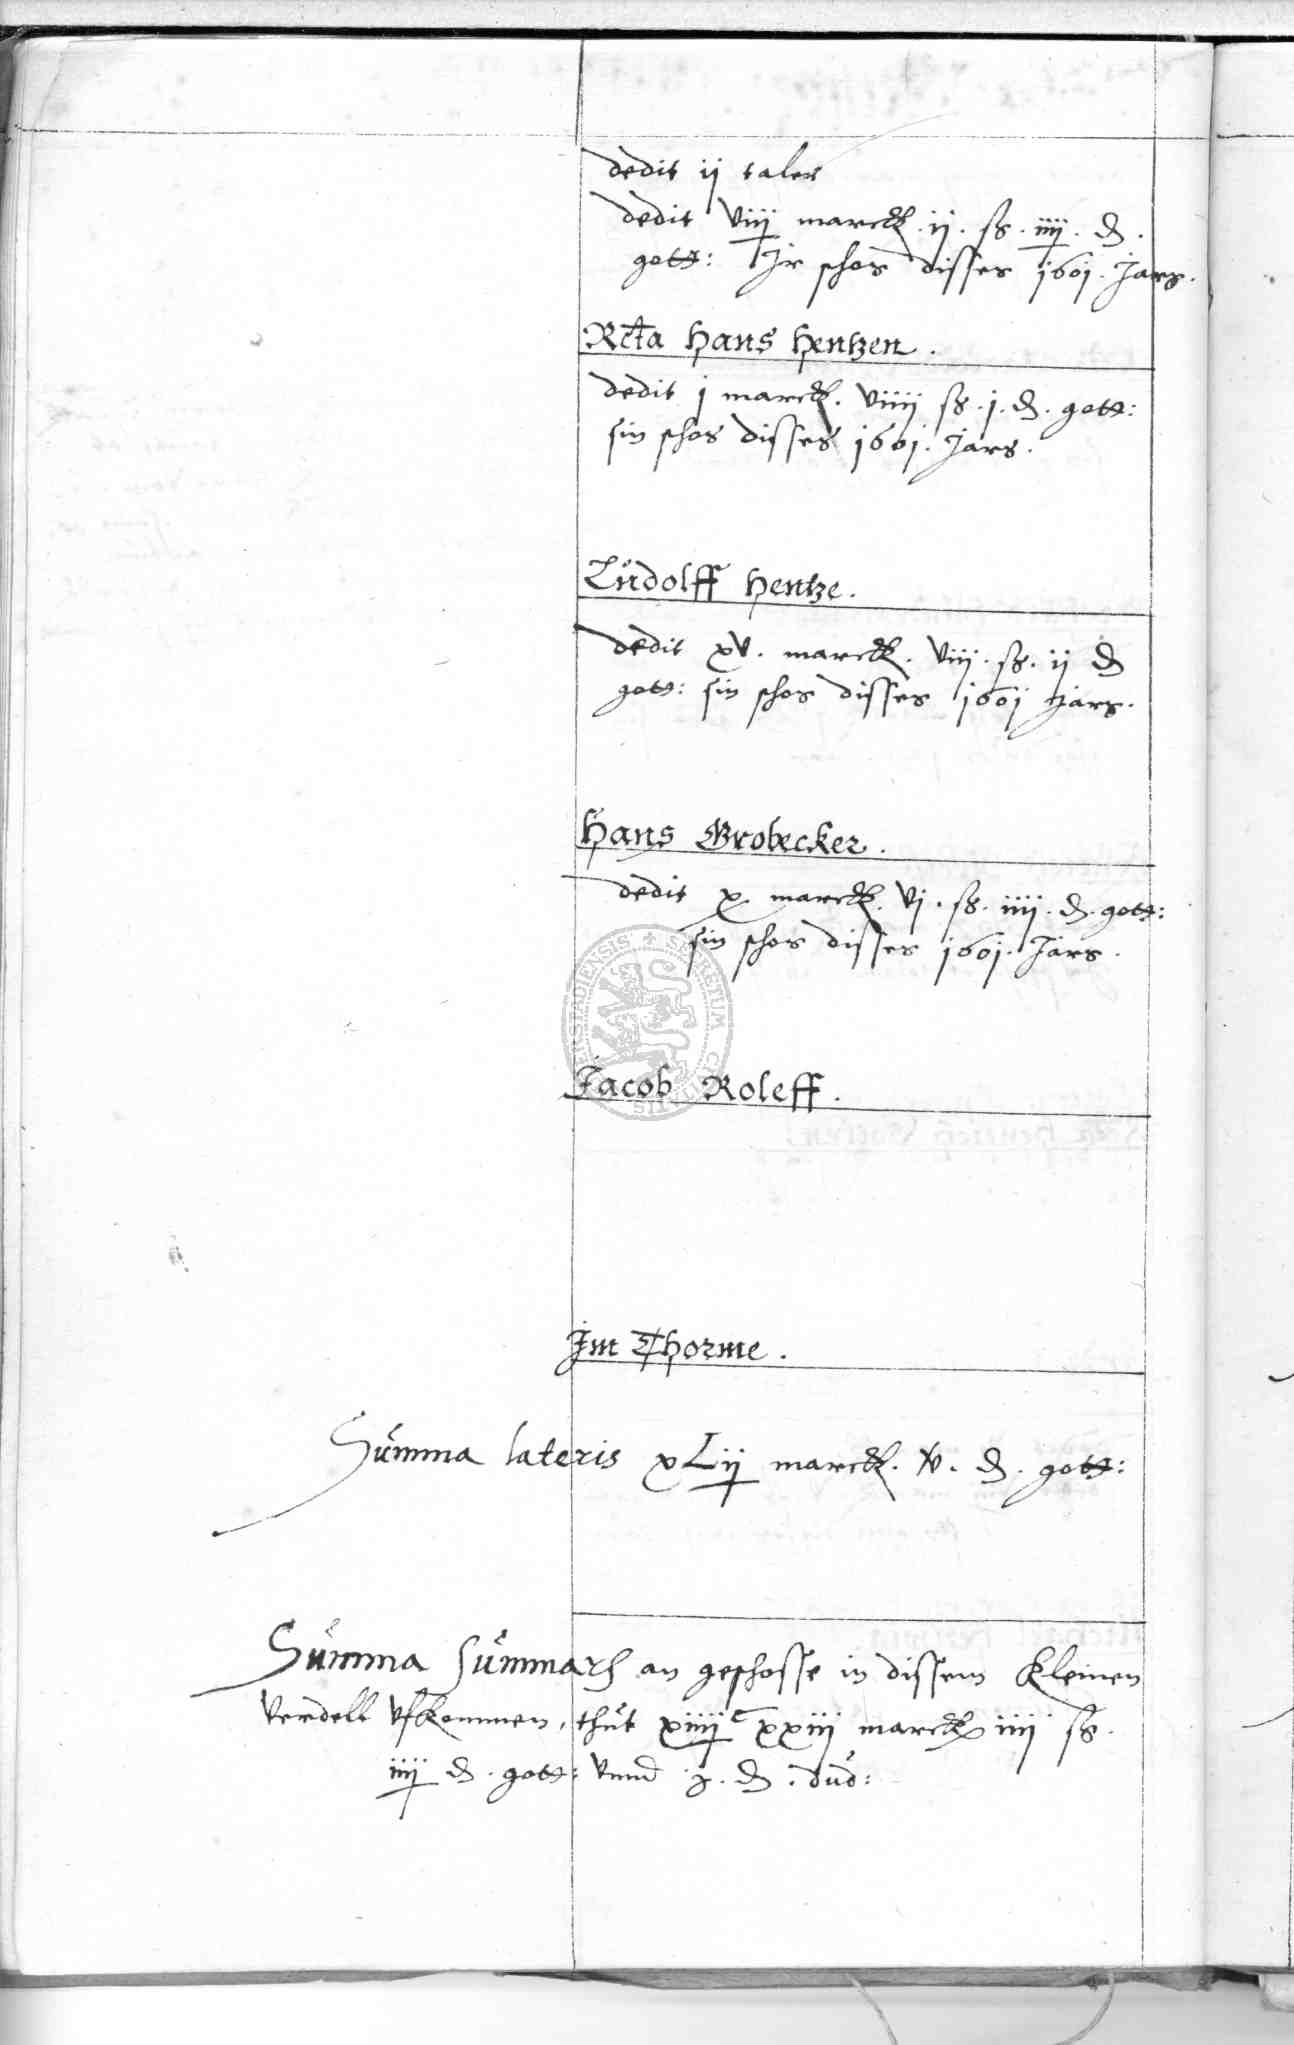 dedit ij taler
dedit viij marck. ij. ß. iiij. ₰.
gott: Ir schos disses 1601. Jars.
Rcta Hans Hentzen.
dedit j marck. viiij ß. j. ₰. gott:
sin schos disses 1601. Jars.
Lůdolff Hentze.
dedit xv. marck. viij. ß. ij ₰
gott: sin schos disses 1601 Jars.
Hans Grobecker.
dedit x marck. vj. ß. iiij. ₰. gott:
sin schos disses 1601. Jars.
SECRETUM CIVITATIS
Jacob Roleff.
Im Thorme.
Sům̃a lateris xLij marck. v. ₰. gott:
Sům̃a sům̃arũ an geschosse in dissem Kleinen
verdell vfkommen, thůt xiiijc xxiij marck iiij ß.
iiij ₰. gott: vnnd j. ₰. důd: